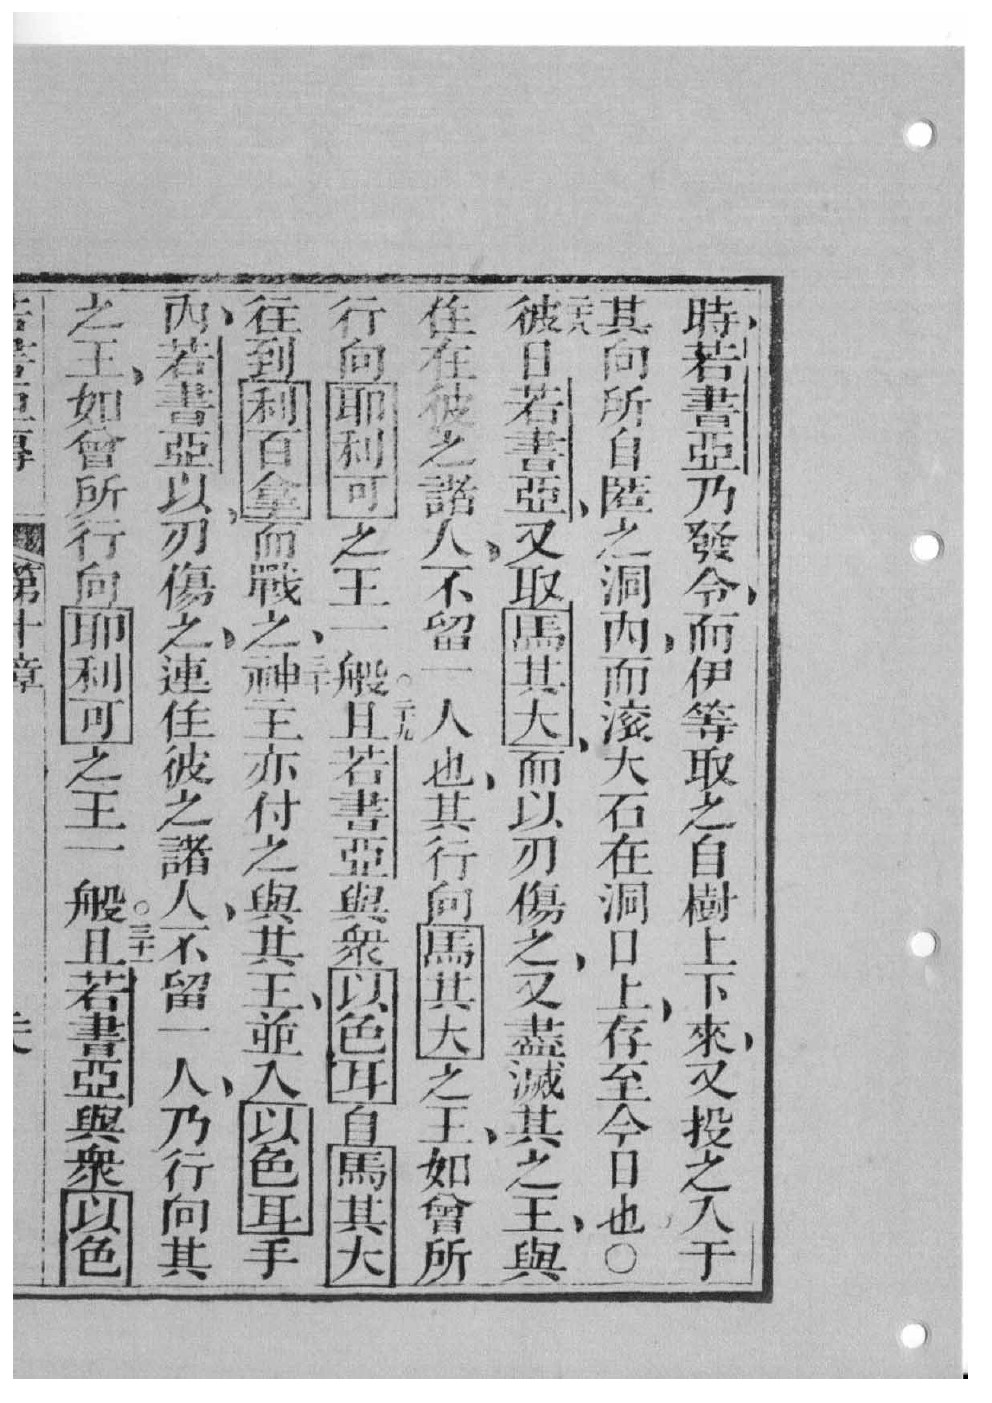 時、若書亞乃發令、而伊等取之自樹上下來、又投之入于
其向所自匿之洞內、而滾大石在洞口上、存至今日也○
二十八彼日若書亞、又取馬其大、而以刃傷之、又盡滅其之王、與
住在彼之諸人、不留一人也、其行向馬其大之王、如曾所
行向耶利可之王一般。二十九且若書亞與衆以色耳自馬其大
往到利百拿、而戰之、三十神主亦付之與其王、並入以色耳手
內、若書亞以刃傷之、連住彼之諸人、不留一人、乃行向其
之王、如曾所行向耶利可之王一般。三十一且若書亞與衆以色
若書亞傳 第十章